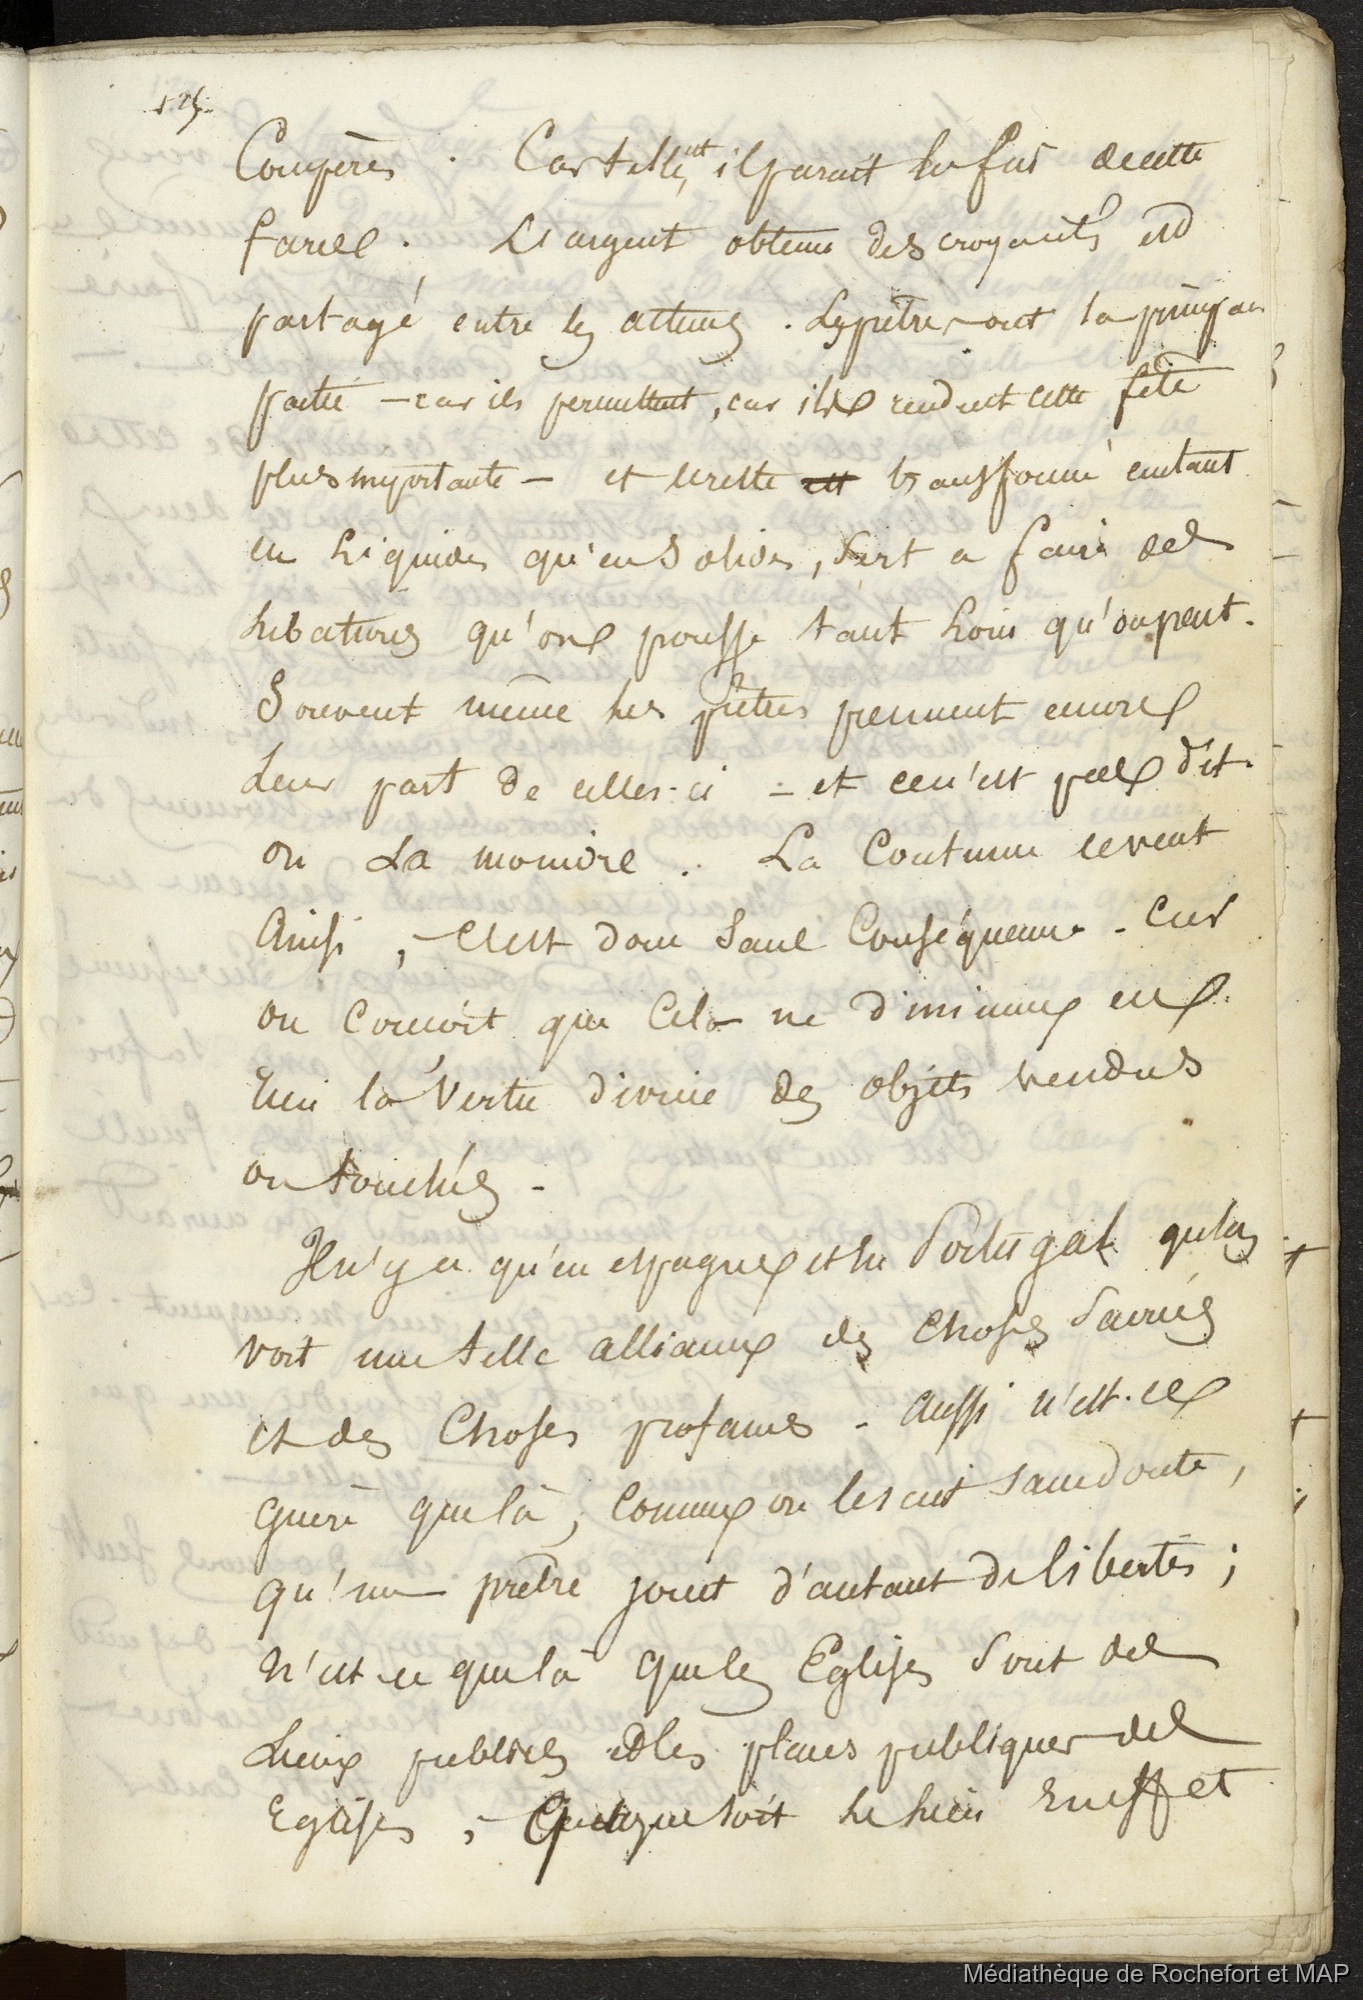 125.
Compères. Car telle est, il parait la fin de cette
farce. L'argent obtenu des croyants est
partagé entre les acteurs. Les prêtres ont la principale
partie – car ils permettent, car ils rendent cette fête
plus importante – et le reste est transformé en tant
en liquides qu'en solides, sert a faire des
libations qu'on pousse tant loin qu'on peut.
Souvent même les prêtres prennent encore
leur part de celles-ci – et ce n'est pas dit-
on la moindre. La Coutume le veut
Ainsi, – c'est donc sans Conséquence – Car
on conçoit que Cela ne diminue en
rien la Vertu divine des objets vendus
ou touchés –
Il n'y a qu'en espagne et en Portugal qu'on
voit une telle alliance des choses Sacrées
et des Choses profanes – aussi n'est-ce
guère que là, comme on le sait sans doute,
qu'un prêtre jouit d'autant de libertés ;
n'est-ce que là que les Eglises sont des
Lieux publics et les places publiques des
Eglises ; Quelque soit le lien En effet
Médiathèque de Rochefort et MAP